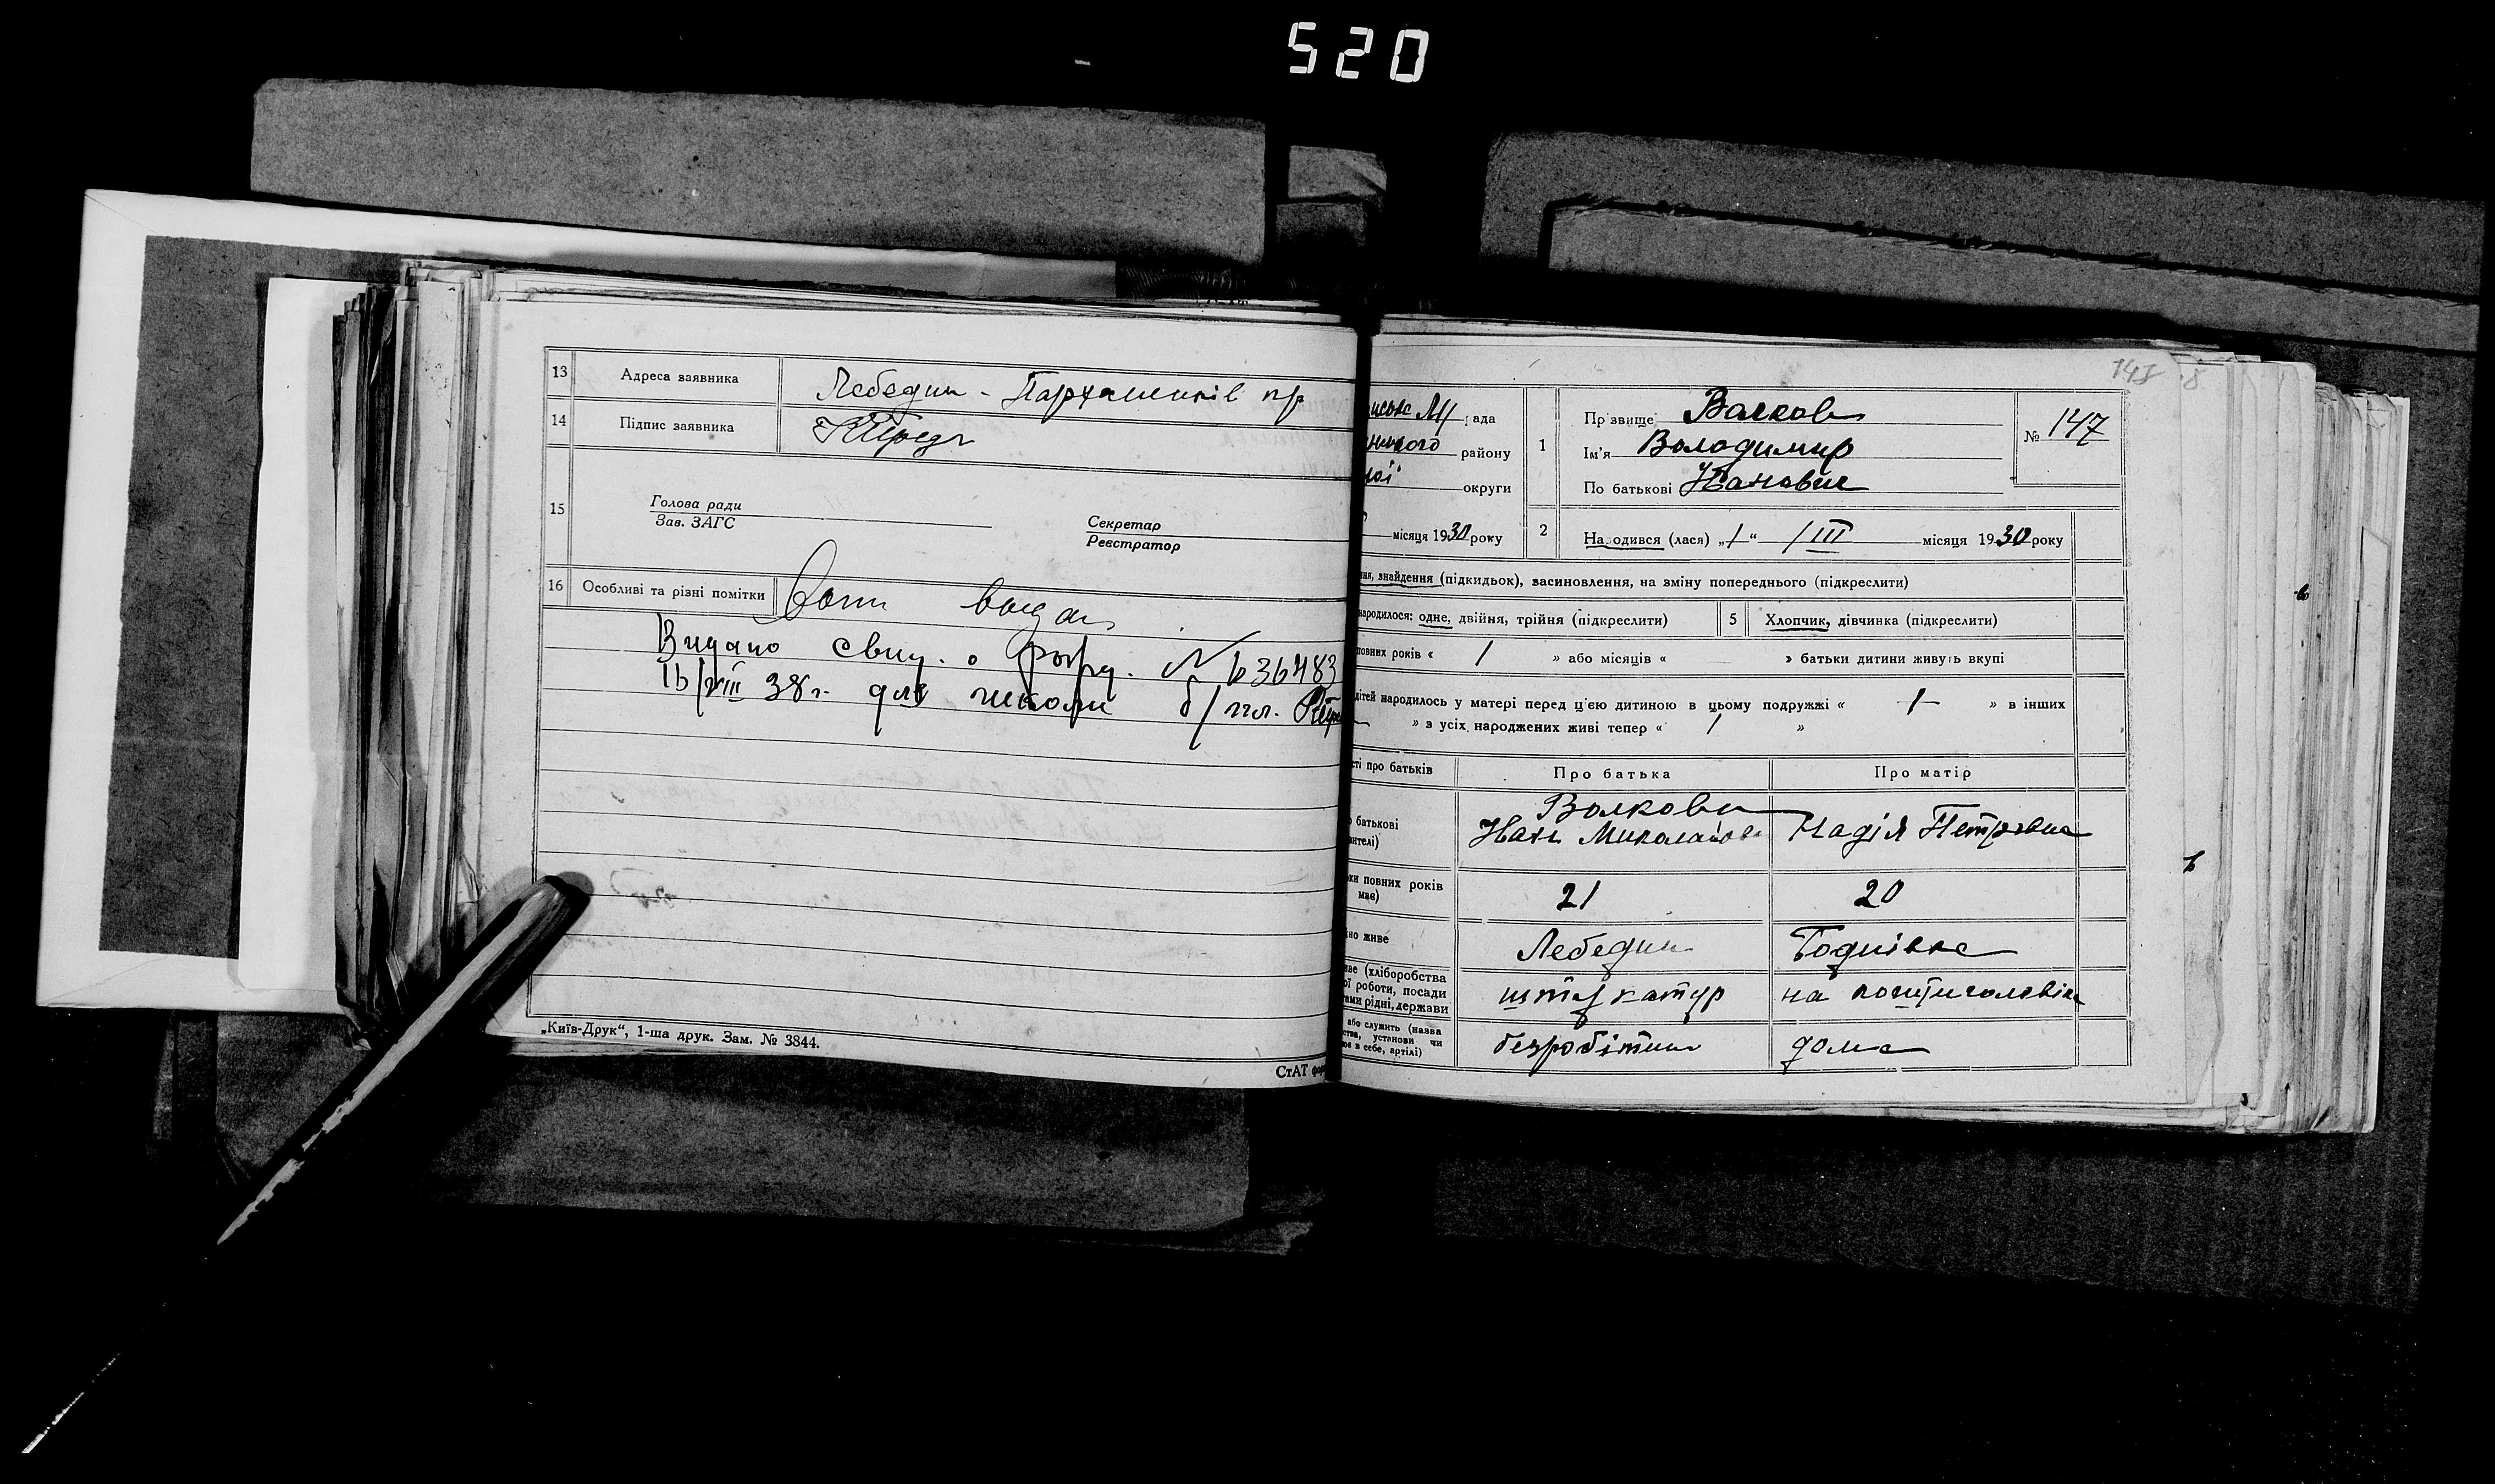 520
13 Адреса заявника Лебедин - Пархоменків пр
14 Підпис заявника
15 Голова ради
Зав. ЗАГС
Секретар
Реєстратор
16 Особливі та різні помітки
Видано свид. о рожд. № 636483
16/VIII 38 г. для школи б/пл.
„Київ-Друк“, 1-ша друк. Зам. № 3844.
СтАТ
148
рада
району
округи
місяця 1930 року
1 Прізвище Волков
Ім'я Володимир
По батькові Іванович
№ 147
2 Народився (лася) „1“ /III місяця 1930 року
знайдення (підкидьок), засиновлення, на зміну попереднього (підкреслити)
народилося: одне, двійня, трійня (підкреслити) 5 Хлопчик, дівчинка (підкреслити)
повних років « 1 » або місяців « — » батьки дитини живуть вкупі
дітей народилось у матері перед цією дитиною в цьому подружжі « 1 » в інших
» з усіх народжених живі тепер « 1 »
про батьків Про батька Про матір
батькові
Волкови
Іван Миколайов Надія Петровна
повних років
має) 21 20
живе Лебедин
(хліборобства
роботи, посади
рідні, держави
штукатур
або служить (назва
установи чи
в себе, артілі)
безробітний дома